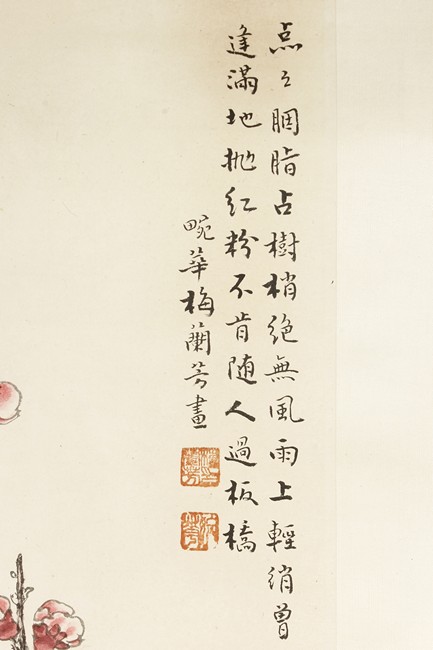 点々胭脂占樹梢絶無風雨上輕綃曾
逢滿地抛紅粉不肯随人過板橋
畹華梅蘭芳畫